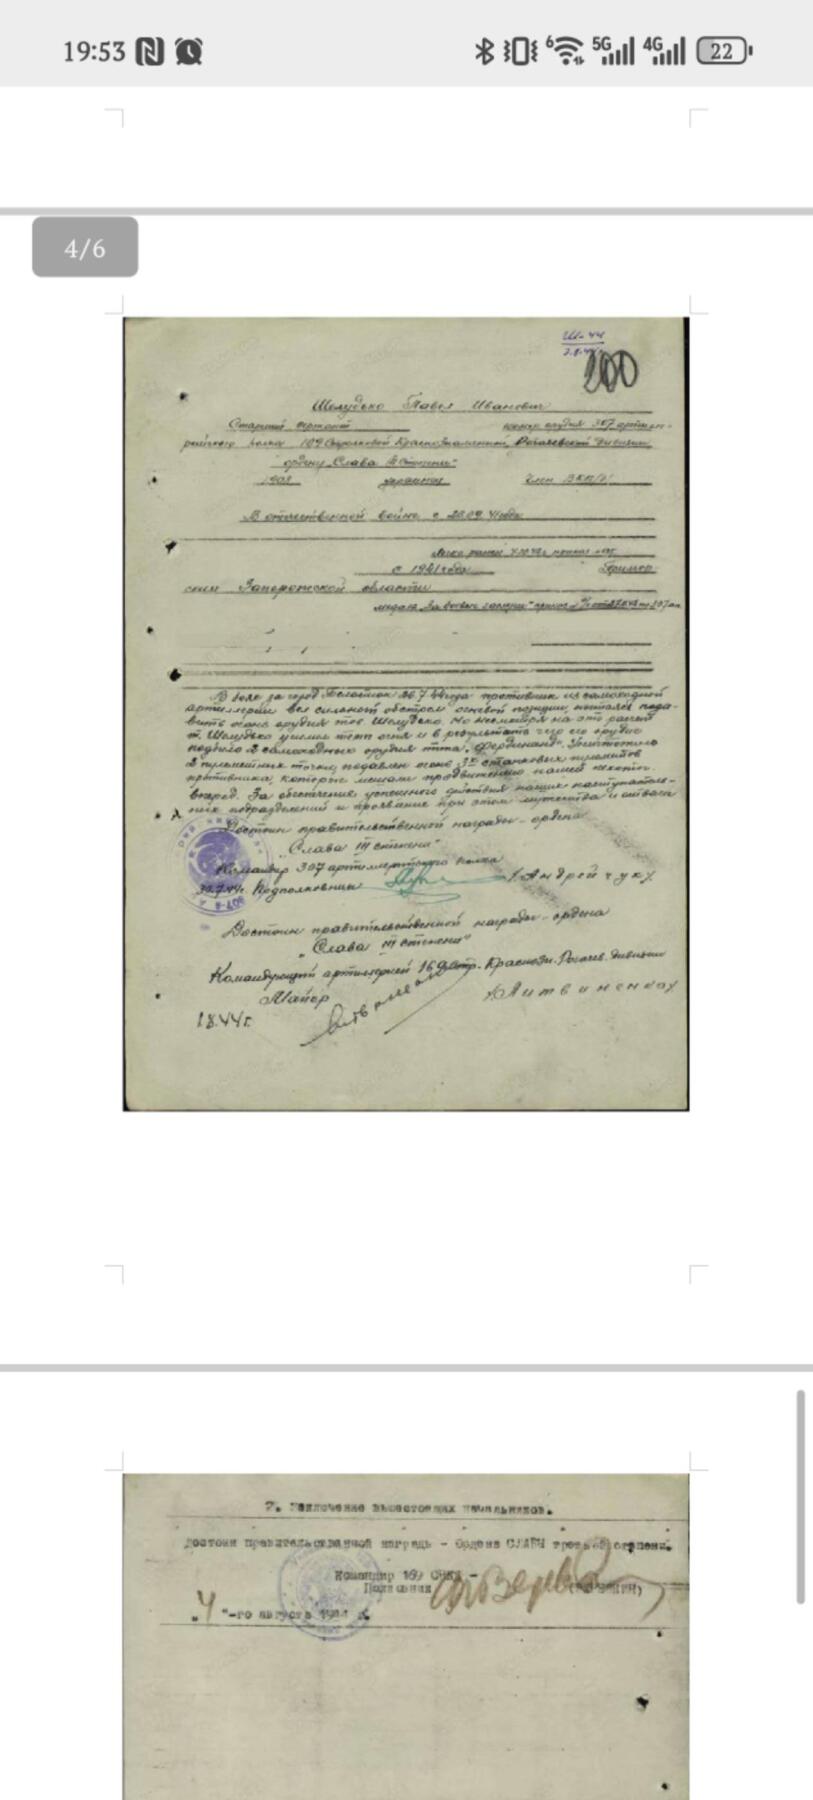 19:53
6 5G 4G 22
4/6
Ш-44
200
Шелудько Павел Иванович
Старший сержант орудия 307 артил-
рийского полка 169 Стрелковой Краснознаменной Рогачевской дивизии
ордену „Слава III степени"
украинец Член ВКП/б/
В отечественной войне с
с 1941 года
ским Запорожской области
медаль „За боевые заслуги"
В боях за город Белосток 26.7.44 года противник из самоходной
артиллерии вел сильный обстрел огневой позиции, пытаясь пода-
вить огонь орудия тов Шелудько. Но несмотря на это расчет
т. Шелудько усилил темп огня и в результате чего его орудие
подбило 2 самоходных орудия типа „Фердинанд". Уничтожило
2 пулеметных точки, подавлен огонь 3х станковых пулеметов
противника, которые мешали продвижению нашей пехоты
вперед. За обеспечение успешного действия наших наступатель-
ных подразделений и проявление при этом мужества и отваги
Достоин правительственной награды - ордена
„Слава III степени"
Командир 307 артиллерийского полка
30.7.44г. Подполковник /Андрейчук/
Достоин правительственной награды - ордена
„Слава III степени"
Командующий артиллерией 169 стр. Краснозн. Рогачев. дивизии
Майор /Литвиненко/
1.8.44г.
7. Заключение вышестоящих начальников.
Достоин правительственной награды - Ордена СЛАВЫ третьей степени.
Командир 169 -
Полковник
„4"-го августа 1944 г.